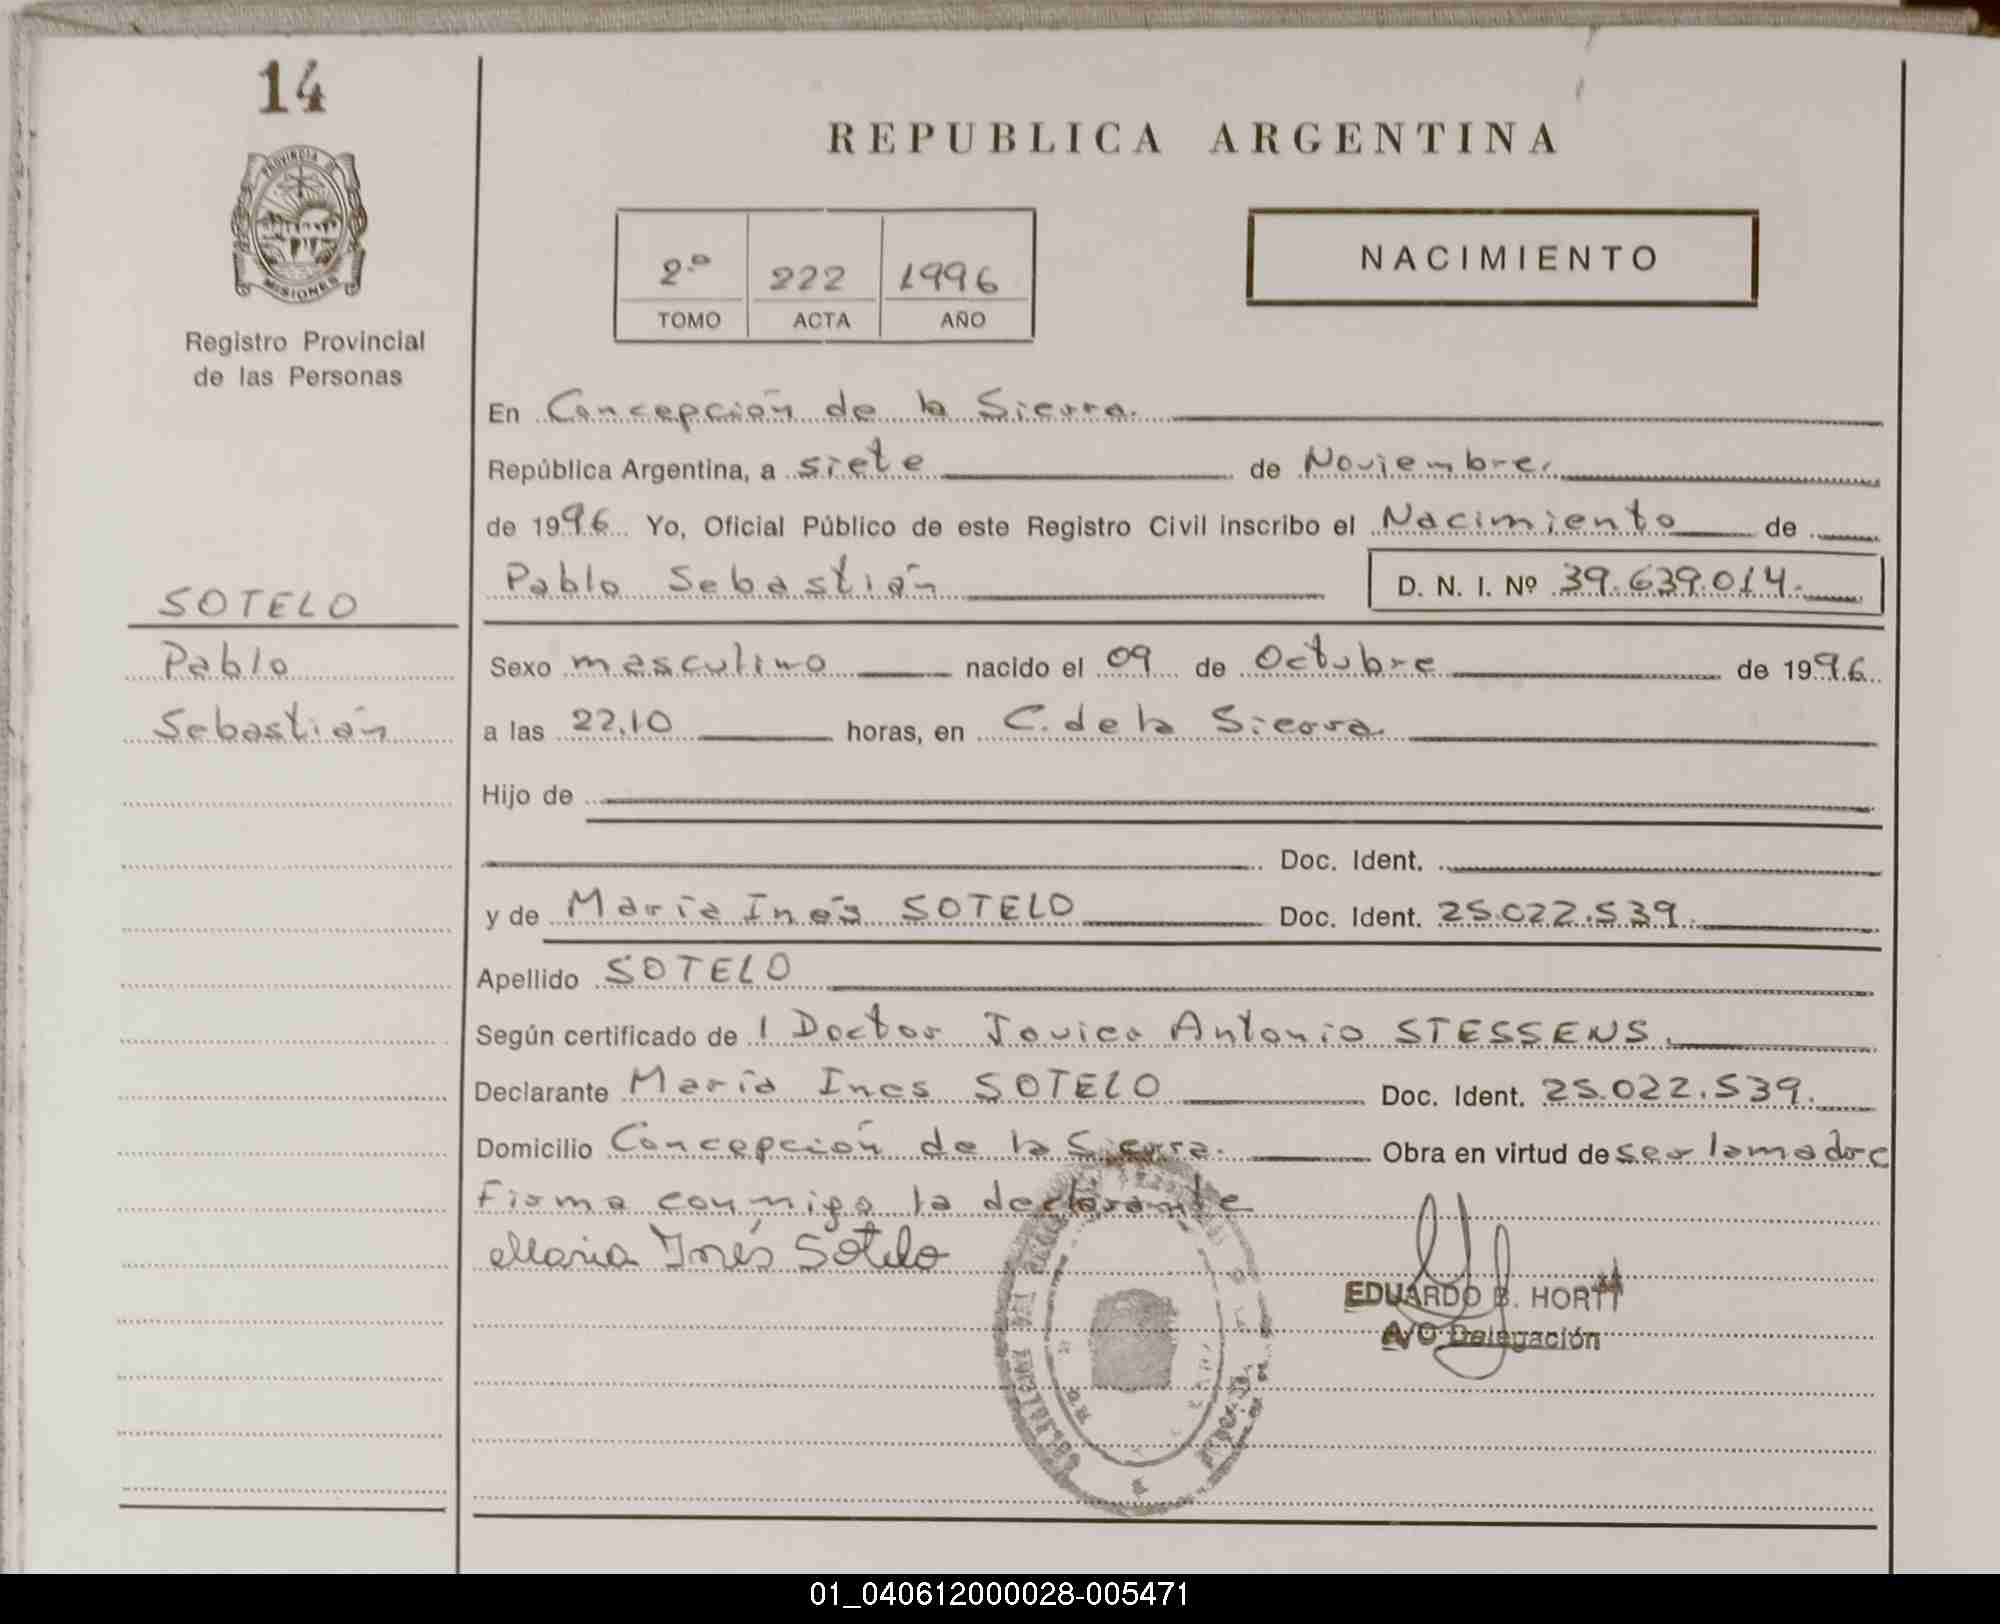 14
PROVINCIA DE
MISIONES
Registro Provincial
de las Personas
SOTELO
Pablo
Sebastián
REPUBLICA ARGENTINA
2º 222 1996
TOMO ACTA AÑO
NACIMIENTO
En Concepción de la Sierra.
República Argentina, a siete de Noviembre.
de 1996 Yo, Oficial Público de este Registro Civil inscribo el Nacimiento de
Pablo Sebastián D. N. I. Nº 39.639.014.
Sexo masculino nacido el 09 de Octubre de 1996
a las 22.10 horas, en C. de la Sierra.
Hijo de
Doc. Ident.
y de María Inés SOTELO Doc. Ident. 25.022.539.
Apellido SOTELO
Según certificado de l Doctor Antonio STESSENS.
Declarante María Ines SOTELO Doc. Ident. 25.022.539.
Domicilio Concepción de la Sierra. Obra en virtud de ser la madre
Firma conmigo la declarante
Maria Inés Sotelo
EDUARDO B.
A/C Delegación
01_040612000028-005471